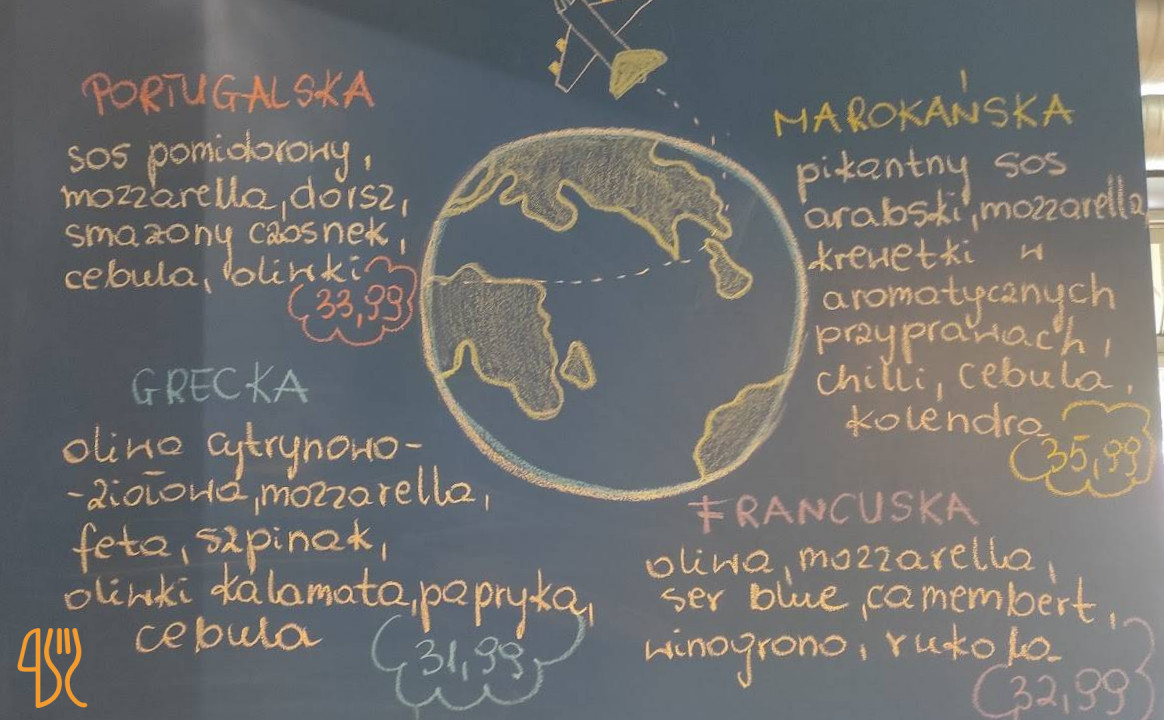 PORTUGALSKA
sos pomidorowy,
mozzarella, dorsz,
smażony czosnek,
cebula, oliwki
33,99
GRECKA
oliwa cytrynowo-
-ziołowa, mozzarella,
feta, szpinak,
oliwki kalamata, papryka,
cebula
31,99
MAROKAŃSKA
pikantny sos
arabski, mozzarella
krewetki w
aromatycznych
przyprawach,
chilli, cebula,
kolendra
35,99
FRANCUSKA
oliwa, mozzarella,
ser blue, camembert,
winogrono, rukola
32,99